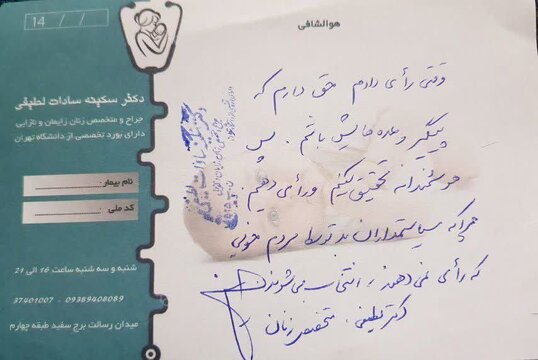 هوالشافی
14 / /
دکتر سکینه سادات لطیفی
جراح و متخصص زنان زایمان و نازایی
دارای بورد تخصصی از دانشگاه تهران
نام بیمار:
کد ملی:
شنبه و سه شنبه ساعت 16 الی 21
09369408089 - 37401007
میدان رسالت برج سفید طبقه چهارم
وقتی رأی دادم حق دارم که
پیگیر وعده هایش باشم. پس
هوشمندانه تحقیق کنیم و رأی دهیم.
چرا که سیاستمداران بد توسط مردم خوبی
که رأی نمی دهند، انتخاب می شوند
دکتر لطیفی، متخصص زنان